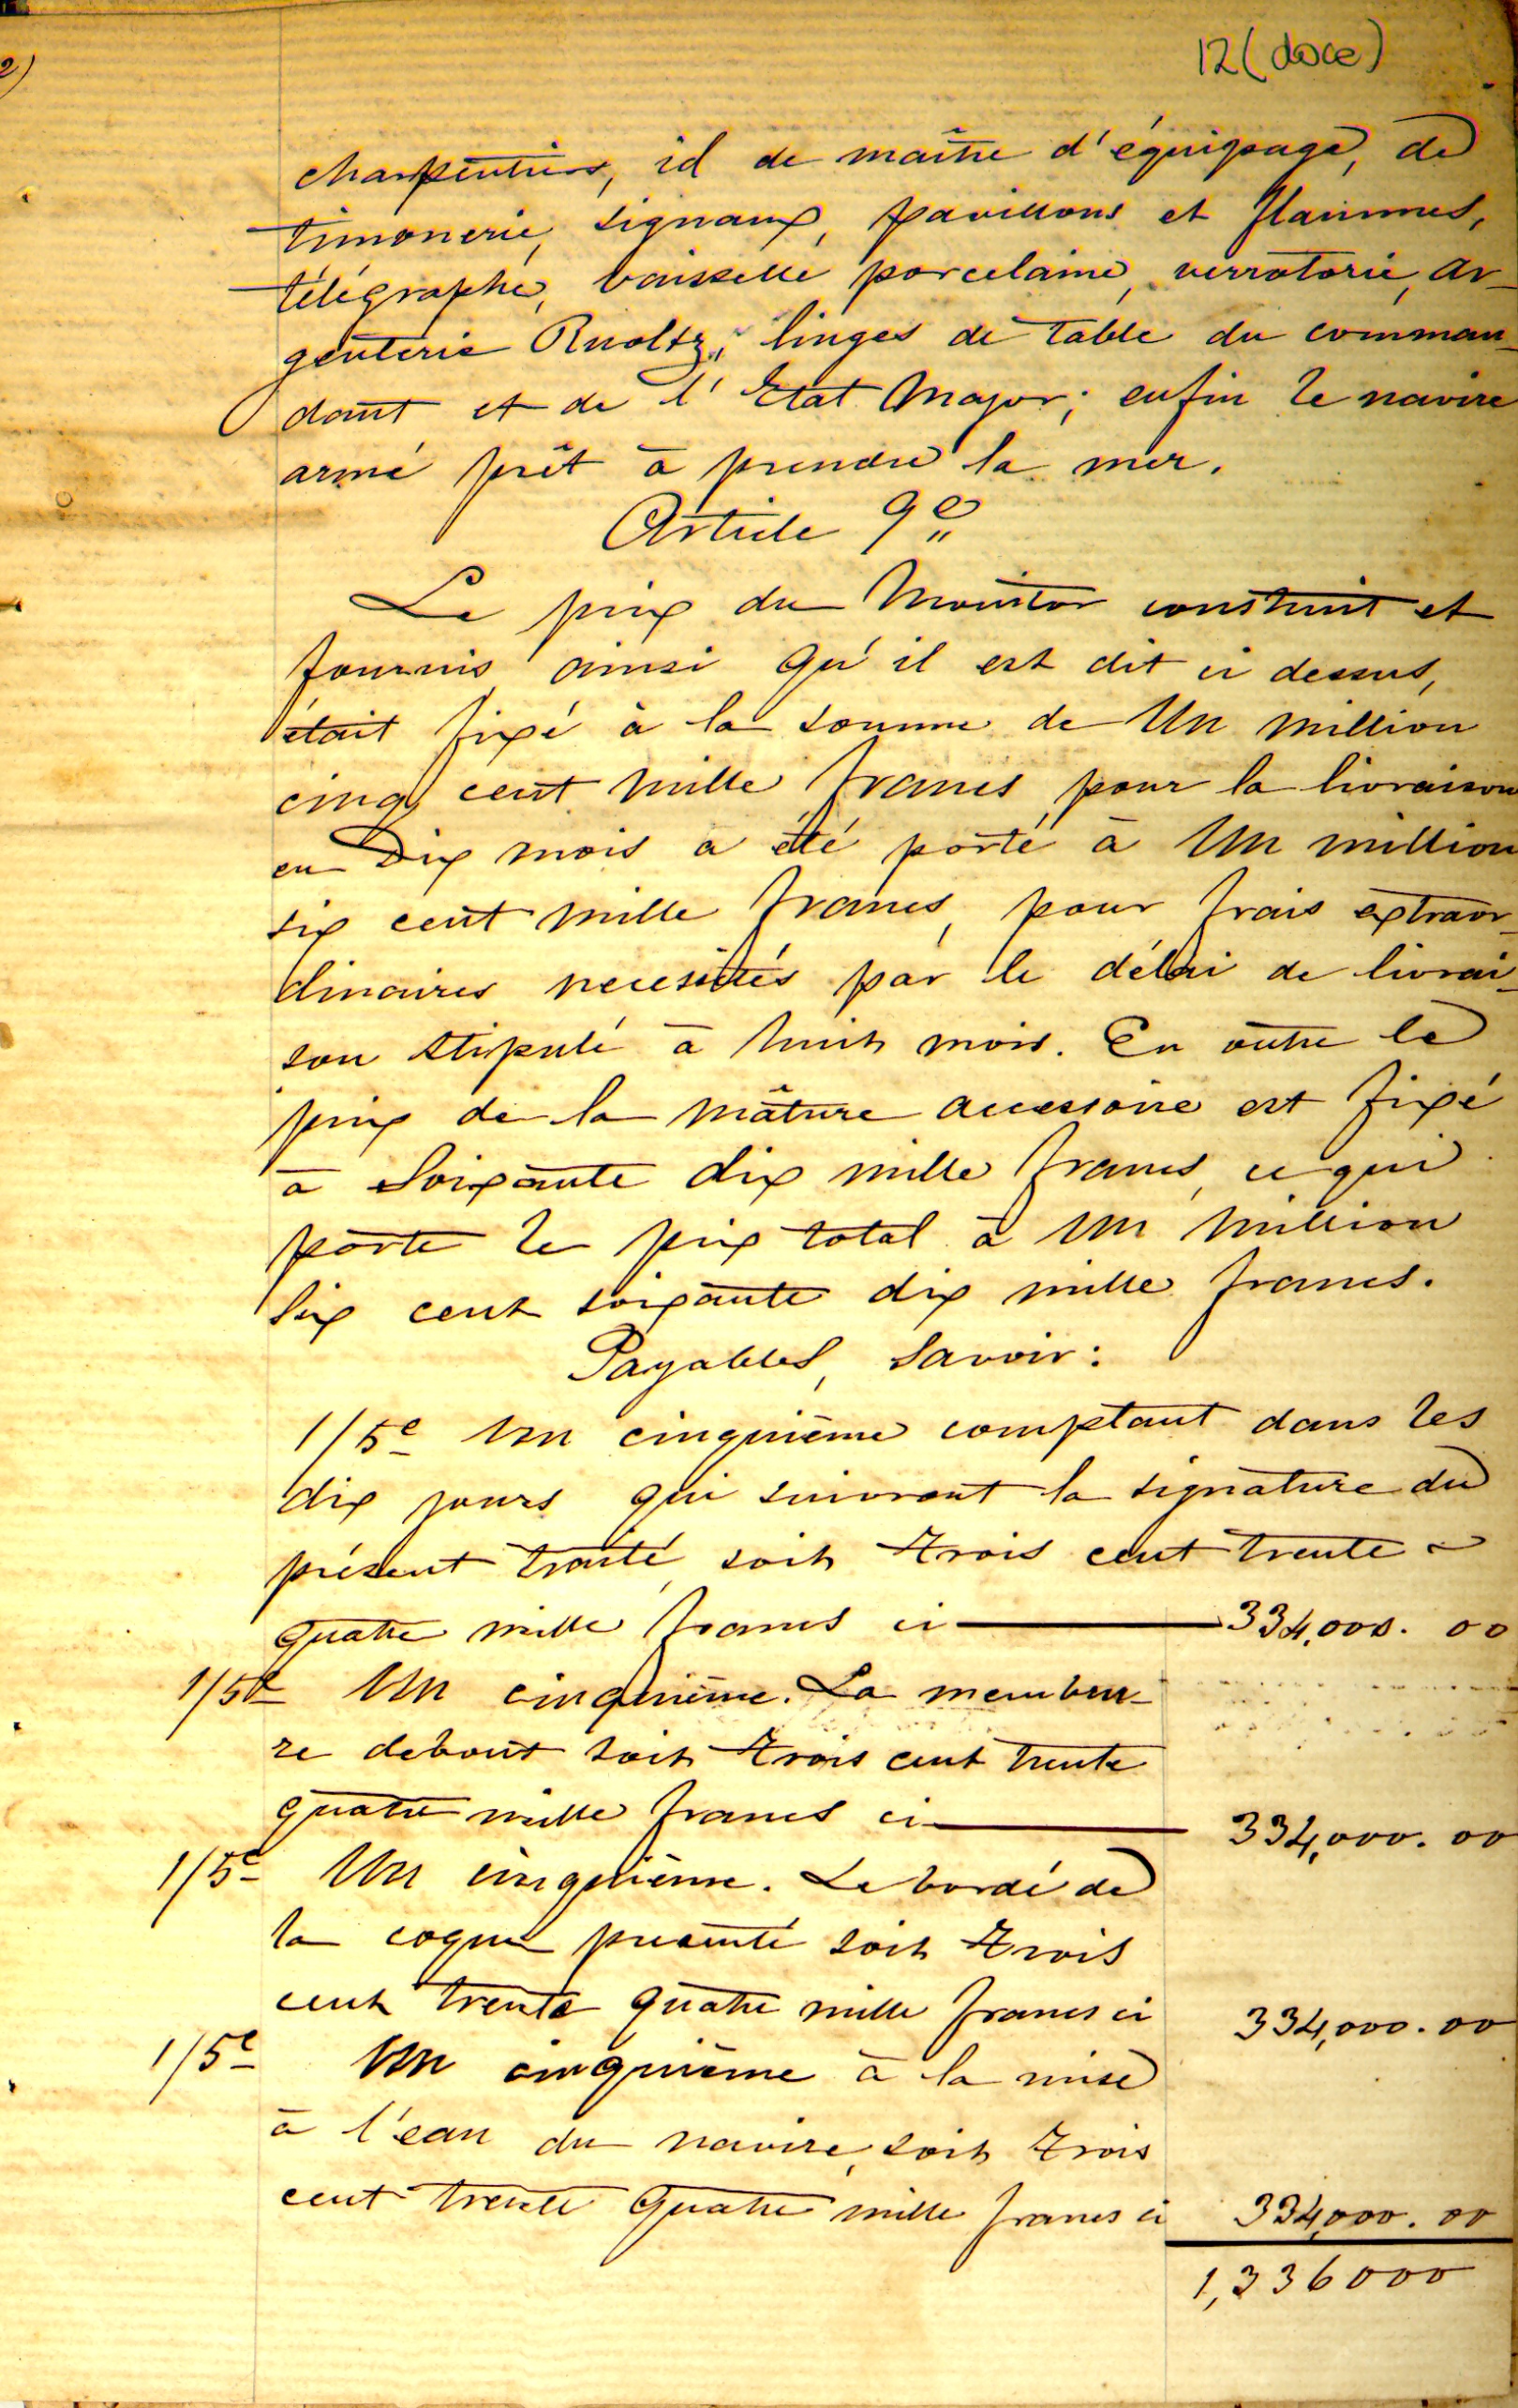 2)
12 (doce)
charpentiers, id de maître d'équipage, de
timonerie, signaux, pavillons et flammes,
télégraphe, vaisselle porcelaine, verroterie, ar-
genterie Ruoltz, linges de table du comman-
dant et de l'Etat Major; enfin le navire
armé prêt à prendre la mer.
Article 9e
Le prix du Monitor construit et
fournis ainsi qu'il est dit ci dessus,
était fixé à la somme de Un million
cinq cent mille francs pour la livraison
en Dix mois a été porté à Un million
six cent mille francs, pour frais extraor-
dinaires necessités par le délai de livrai-
son stipulé à huit mois. En outre le
prix de la mâture accessoire est fixé
à Soixante dix mille francs, ce qui
porte le prix total à Un million
Six cent soixante dix mille francs.
Payables, Savoir:
1/5e Un cinquième comptant dans les
dix jours qui suivront la signature du
présent traité, soit trois cent trente
quatre mille francs ci 334,000. 00
1/5e Un cinquième. La membru-
re debout soit trois cent trente
quatre mille francs ci 334,000. 00
1/5e Un cinquième. Le bordé de
la coque présenté soit trois
cent trente quatre mille francs ci 334,000. 00
1/5e Un cinquième à la mise
à l'eau du navire, soit trois
cent trente quatre mille francs ci 334,000. 00
1,336000